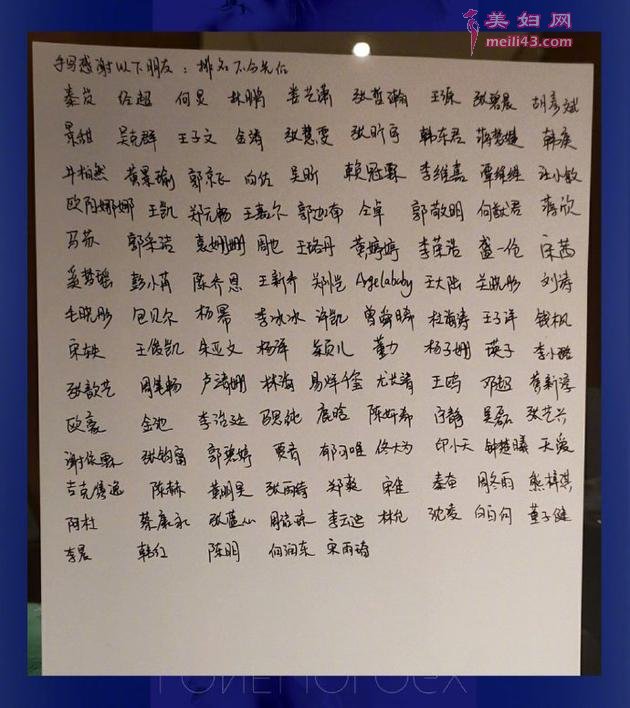 美妇网
meili43.com
手写感谢以下朋友：排名不分先后
秦岚 经超 何炅 林鹏 娄艺潇 张哲瀚 王源 张碧晨 胡彦斌
景甜 吴克群 王子文 金涛 张慧雯 张昕宇 韩东君 蒋梦婕 韩庚
井柏然 黄景瑜 郭京飞 向佐 吴昕 赖冠霖 李维嘉 谭维维 汪小敏
欧阳娜娜 王凯 郑元畅 王嘉尔 郭迦南 仝卓 郭敬明 何猷君 蒋欣
马苏 郭采洁 袁姗姗 周也 王珞丹 黄婷婷 李荣浩 盛一伦 宋茜
奚梦瑶 彭小苒 陈乔恩 王新乔 郑恺 Angelababy 王大陆 关晓彤 刘涛
毛晓彤 包贝尔 杨幂 李冰冰 许凯 曾舜晞 杜海涛 王子洋 钱枫
宋轶 王俊凯 朱亚文 杨洋 颖儿 董力 杨子姗 瑛子 李小璐
张歆艺 周笔畅 卢靖姗 林海 易烊千玺 尤长靖 王鸥 邓超 黄新淳
欧豪 金池 李治廷 马思纯 鹿晗 陈妍希 白静 吴磊 张艺兴
谢依霖 张钧甯 郭碧婷 贾青 郁可唯 佟大为 印小天 钟楚曦 天爱
吉克隽逸 陈赫 黄明昊 张雨绮 郑爽 宋佳 秦奋 周冬雨 熊梓淇
阿杜 蔡康永 张蓝心 周依琳 李云迪 林允 沈凌 白百何 董子健
李晨 韩红 陈明 何润东 宋雨琦